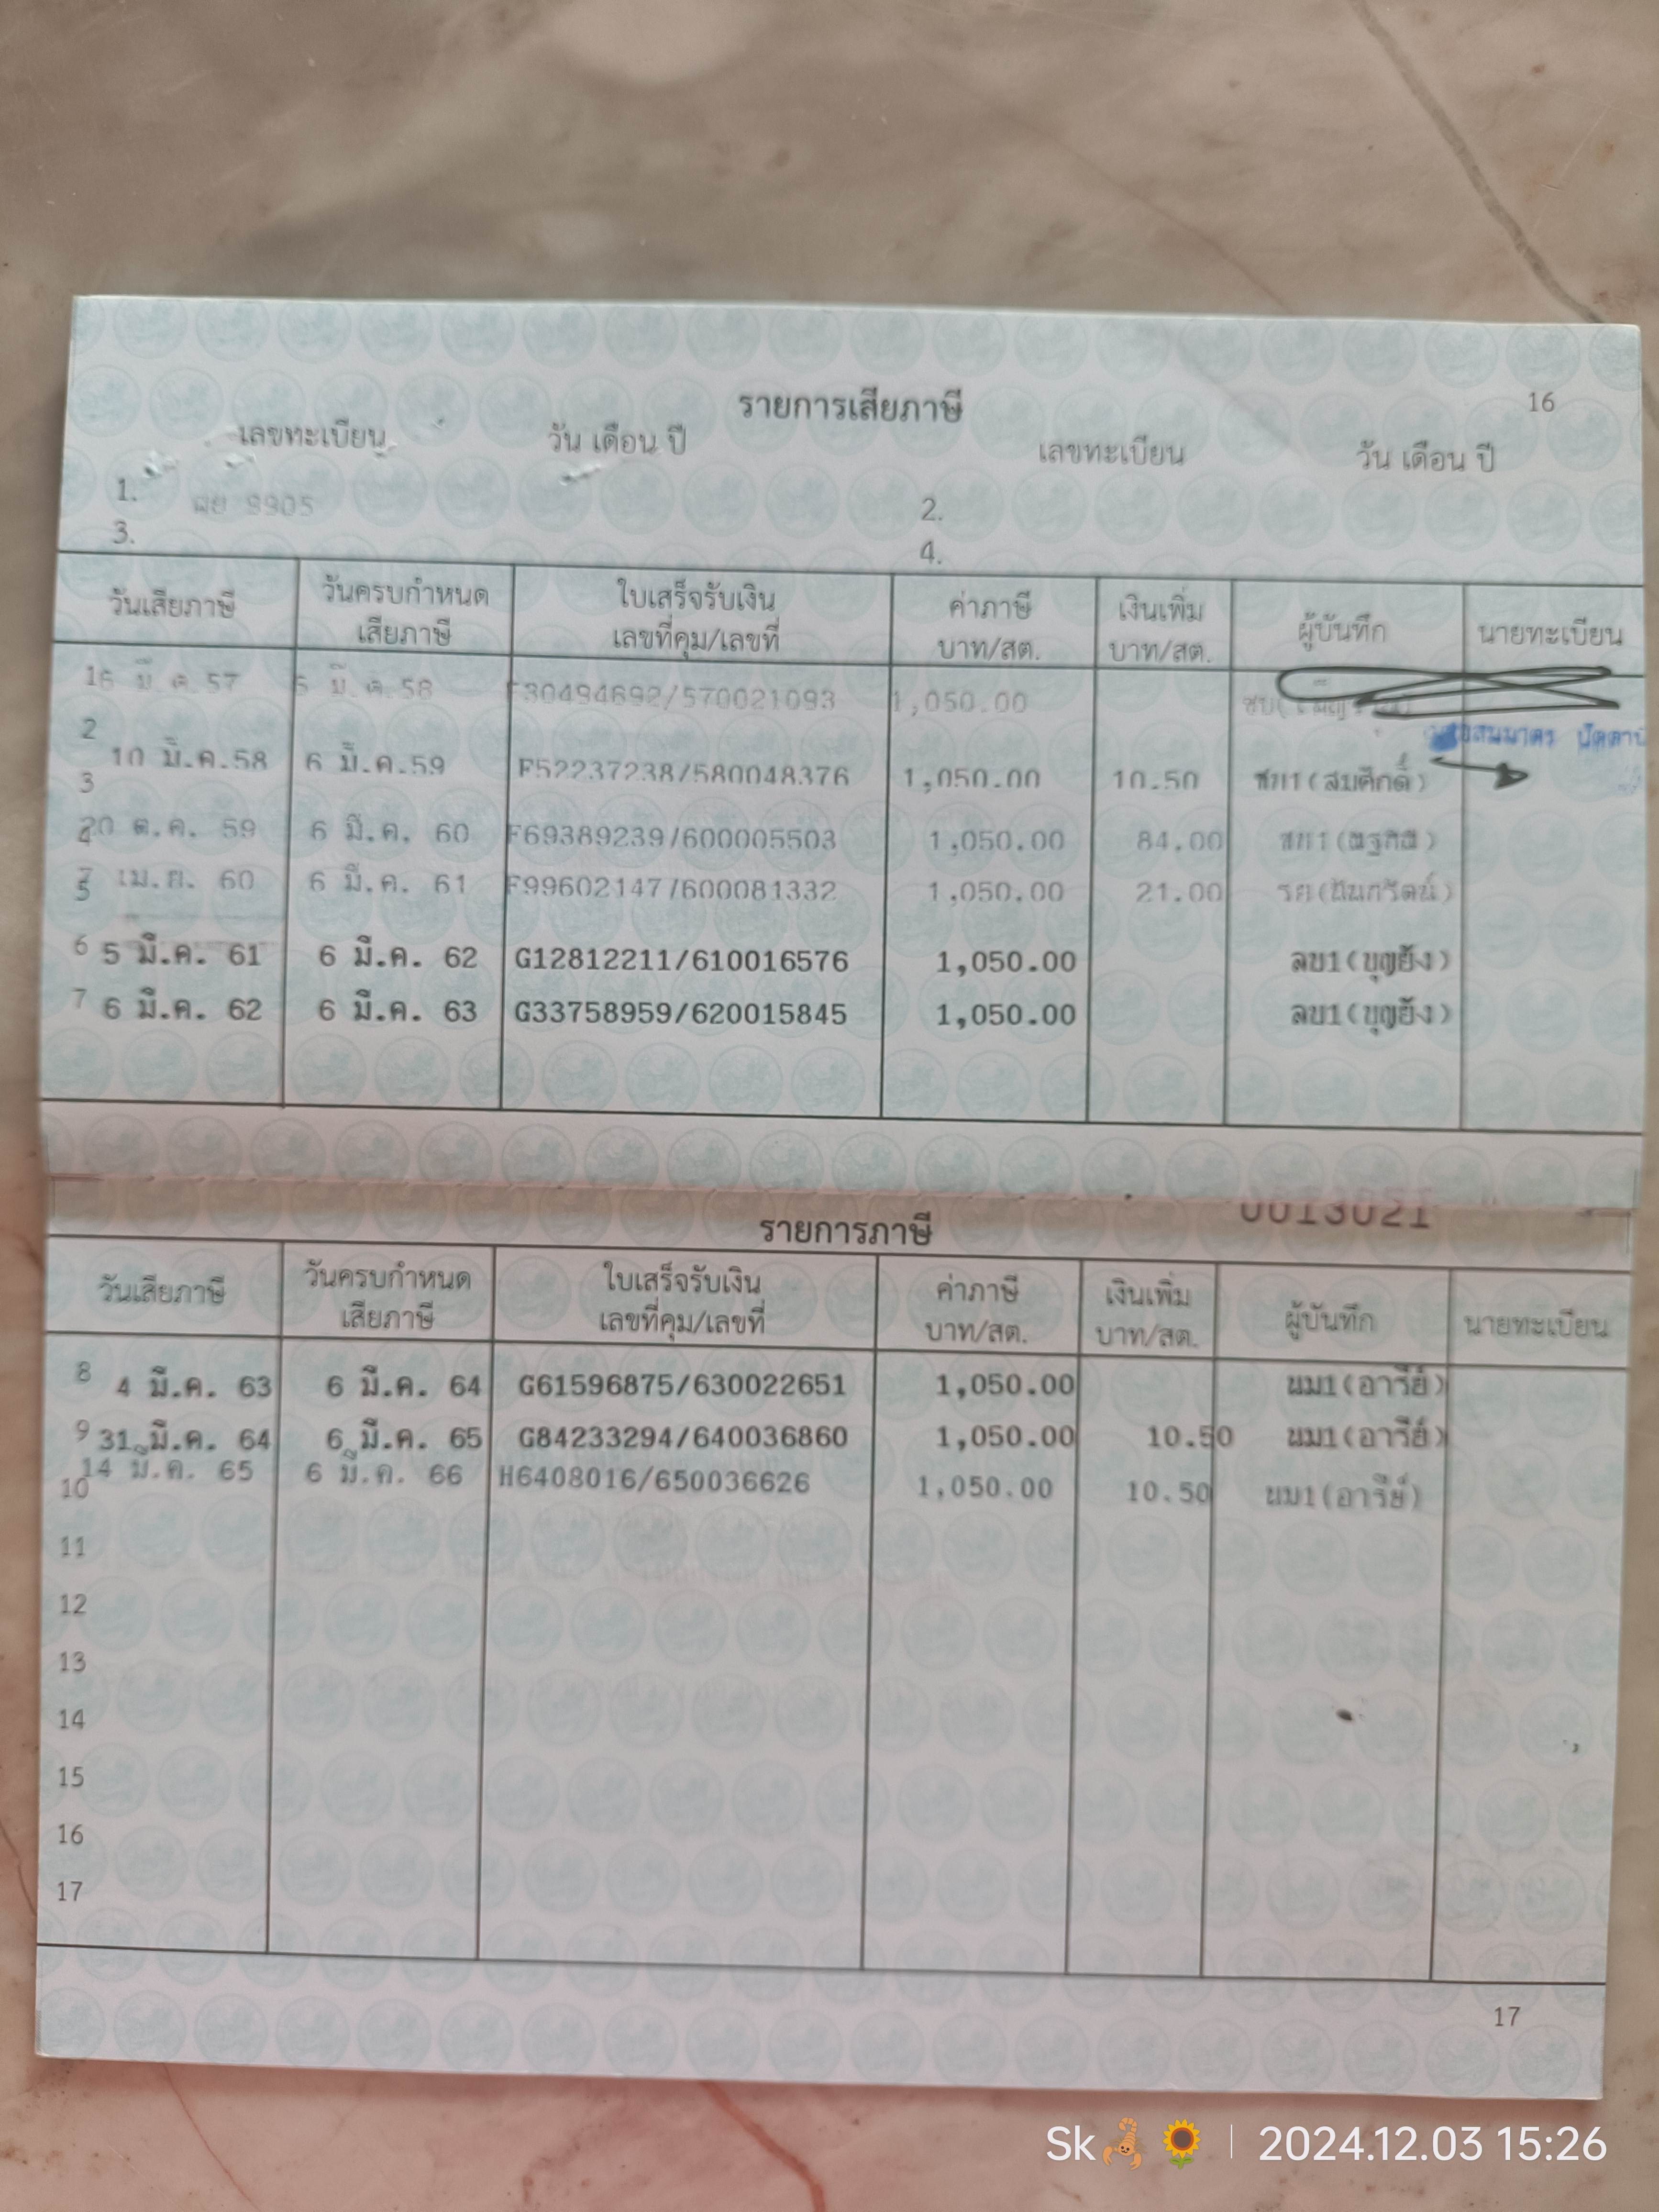 รายการเสียภาษี 16
เลขทะเบียน วัน เดือน ปี เลขทะเบียน วัน เดือน ปี
1. ผย 9905 2.
3. 4.
วันเสียภาษี วันครบกำหนดเสียภาษี ใบเสร็จรับเงิน เลขที่คุม/เลขที่ ค่าภาษี บาท/สต. เงินเพิ่ม บาท/สต. ผู้บันทึก นายทะเบียน
1 6 มี.ค.57 6 มี.ค.58 F30494692/570021093 1,050.00
2 10 มี.ค.58 6 มี.ค.59 F52237238/580048376 1,050.00 10.50 (สมศักดิ์)
3
4 20 ต.ค. 59 6 มี.ค. 60 F69389239/600005503 1,050.00 84.00
5 7 เม.ย. 60 6 มี.ค. 61 F99602147/600081332 1,050.00 21.00
6 5 มี.ค. 61 6 มี.ค. 62 G12812211/610016576 1,050.00 ลบ1(บุญยัง)
7 6 มี.ค. 62 6 มี.ค. 63 G33758959/620015845 1,050.00 ลบ1(บุญยัง)
0013021
รายการภาษี
วันเสียภาษี วันครบกำหนดเสียภาษี ใบเสร็จรับเงิน เลขที่คุม/เลขที่ ค่าภาษี บาท/สต. เงินเพิ่ม บาท/สต. ผู้บันทึก นายทะเบียน
8 4 มี.ค. 63 6 มี.ค. 64 G61596875/630022651 1,050.00 นม1(อารีย์)
9 31 มี.ค. 64 6 มี.ค. 65 G84233294/640036860 1,050.00 10.50 นม1(อารีย์)
10 14 มี.ค. 65 6 มี.ค. 66 H6408016/650036626 1,050.00 10.50 นม1(อารีย์)
11
12
13
14
15
16
17
17
Sk 2024.12.03 15:26